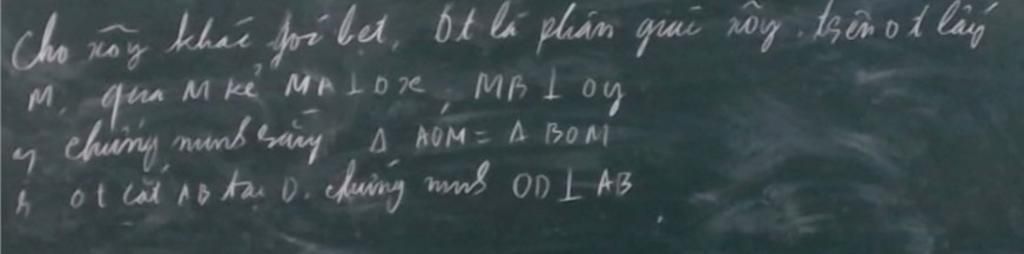 Cho xôy khác góc bẹt. Ot là phân giác xôy. trên ot lấy
M. qua M kẻ MA ⊥ Ox, MB ⊥ oy
a, chứng minh rằng Δ AOM = Δ BOM
b, ot cắt AB tại D. chứng minh OD ⊥ AB